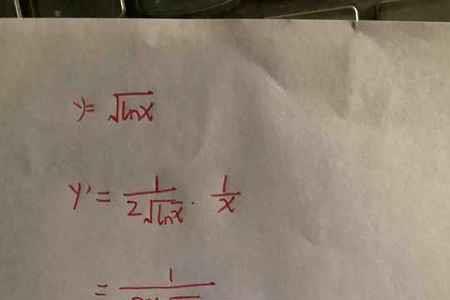 y = √lnx
y' = 1/(2√lnx) · 1/x
= 1